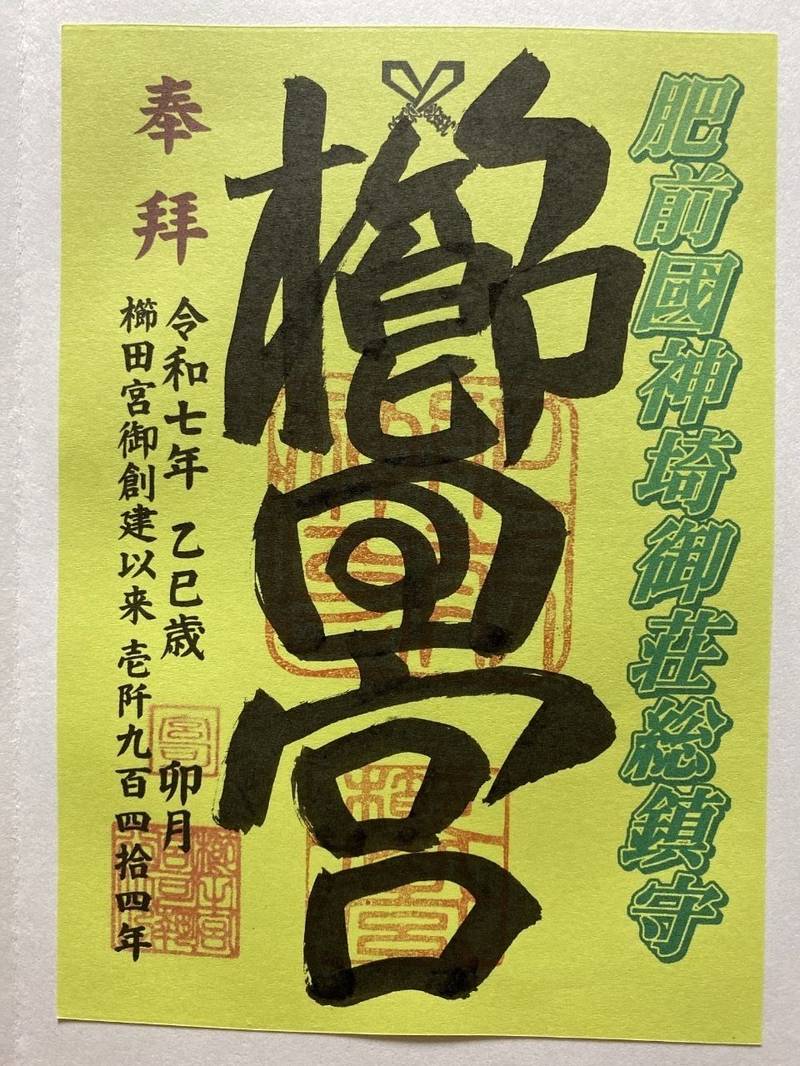 肥前國神埼御荘総鎮守
櫛田宮
奉拝
令和七年 乙巳歳 卯月
櫛田宮御創建以来 壱阡九百四拾四年